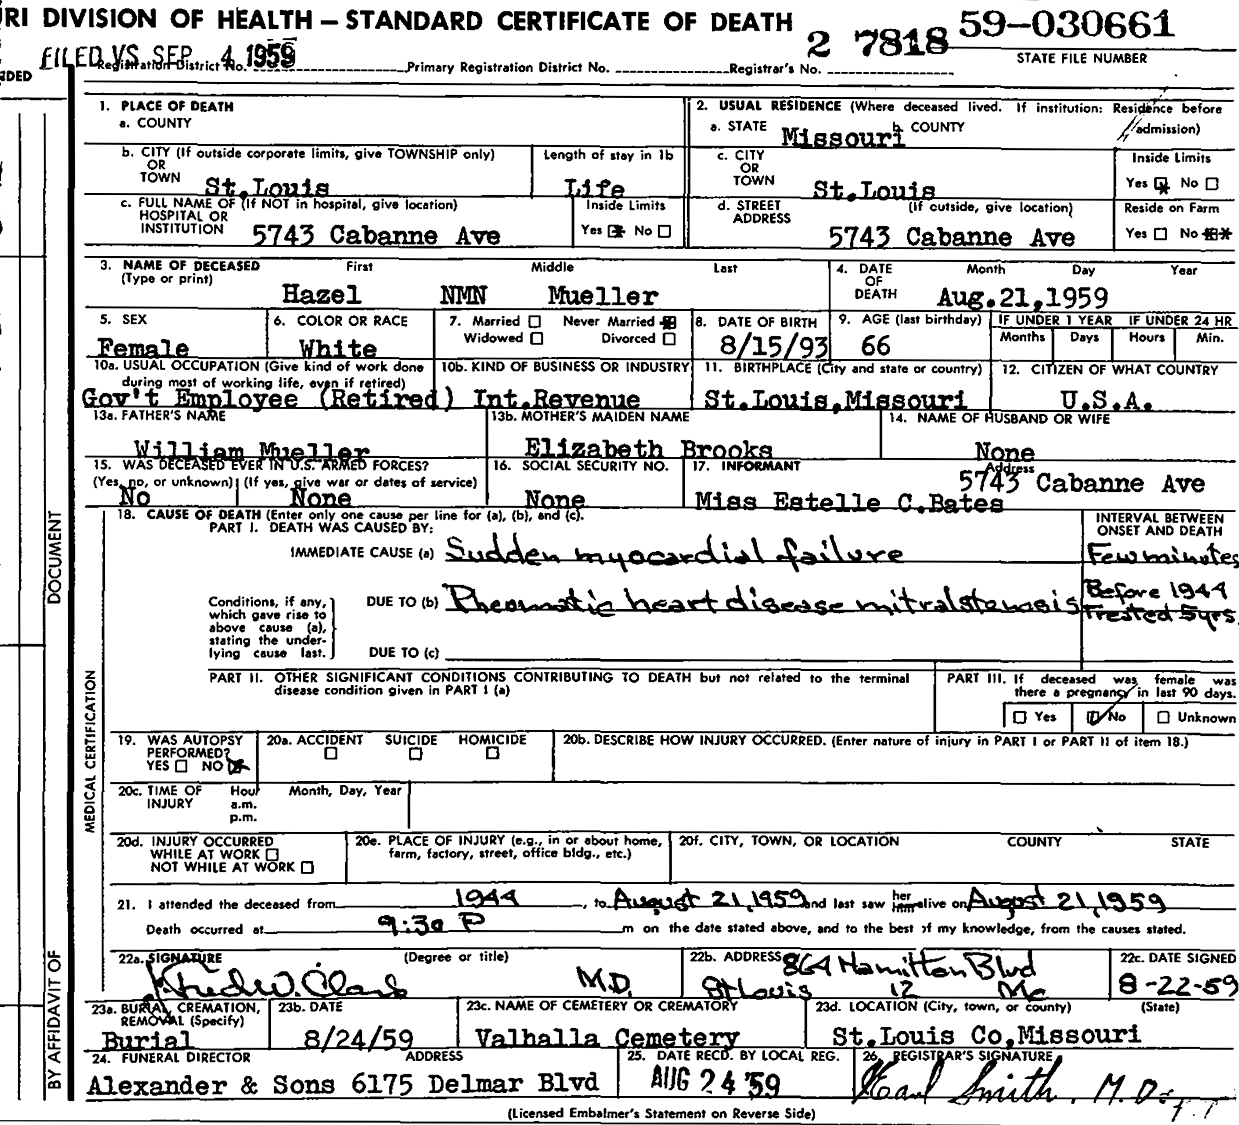 RI DIVISION OF HEALTH – STANDARD CERTIFICATE OF DEATH
2 7818 59-030661
FILED VS SEP 4 1959
Registration District No. Primary Registration District No. Registrar's No. STATE FILE NUMBER
NDED
1. PLACE OF DEATH
a. COUNTY
2. USUAL RESIDENCE (Where deceased lived. If institution: Residence before admission)
a. STATE Missouri b. COUNTY
b. CITY (If outside corporate limits, give TOWNSHIP only) OR TOWN St.Louis
Length of stay in 1b Life
c. CITY OR TOWN St.Louis
Inside Limits Yes ☒ No ☐
c. FULL NAME OF (If NOT in hospital, give location) HOSPITAL OR INSTITUTION 5743 Cabanne Ave
Inside Limits Yes ☒ No ☐
d. STREET ADDRESS (If outside, give location) 5743 Cabanne Ave
Reside on Farm Yes ☐ No ☒
3. NAME OF DECEASED (Type or print) First Middle Last
Hazel NMN Mueller
4. DATE OF DEATH Month Day Year
Aug.21,1959
5. SEX Female
6. COLOR OR RACE White
7. Married ☐ Never Married ☒
Widowed ☐ Divorced ☐
8. DATE OF BIRTH 8/15/93
9. AGE (last birthday) 66
IF UNDER 1 YEAR IF UNDER 24 HR
Months Days Hours Min.
10a. USUAL OCCUPATION (Give kind of work done during most of working life, even if retired)
Gov't Employee (Retired)
10b. KIND OF BUSINESS OR INDUSTRY Int.Revenue
11. BIRTHPLACE (City and state or country) St.Louis,Missouri
12. CITIZEN OF WHAT COUNTRY U.S.A.
13a. FATHER'S NAME William Mueller
13b. MOTHER'S MAIDEN NAME Elizabeth Brooks
14. NAME OF HUSBAND OR WIFE None
15. WAS DECEASED EVER IN U.S. ARMED FORCES?
(Yes, no, or unknown) (If yes, give war or dates of service)
No None
16. SOCIAL SECURITY NO. None
17. INFORMANT Address
Miss Estelle C.Bates 5743 Cabanne Ave
18. CAUSE OF DEATH (Enter only one cause per line for (a), (b), and (c).
PART I. DEATH WAS CAUSED BY:
INTERVAL BETWEEN ONSET AND DEATH
IMMEDIATE CAUSE (a) Sudden myocardial failure Few minutes
Conditions, if any, which gave rise to above cause (a), stating the under-lying cause last.
DUE TO (b) Rheumatic heart disease mitral stenosis Before 1944 Treated 5yrs.
DUE TO (c)
PART II. OTHER SIGNIFICANT CONDITIONS CONTRIBUTING TO DEATH but not related to the terminal disease condition given in PART I (a)
PART III. If deceased was female was there a pregnancy in last 90 days.
☐ Yes ☑ No ☐ Unknown
19. WAS AUTOPSY PERFORMED?
YES ☐ NO ☒
20a. ACCIDENT ☐ SUICIDE ☐ HOMICIDE ☐
20b. DESCRIBE HOW INJURY OCCURRED. (Enter nature of injury in PART I or PART II of item 18.)
20c. TIME OF INJURY Hour a.m. p.m. Month, Day, Year
20d. INJURY OCCURRED
WHILE AT WORK ☐
NOT WHILE AT WORK ☐
20e. PLACE OF INJURY (e.g., in or about home, farm, factory, street, office bldg., etc.)
20f. CITY, TOWN, OR LOCATION COUNTY STATE
21. I attended the deceased from 1944, to August 21,1959 and last saw her him alive on August 21,1959
Death occurred at 9:30 P m on the date stated above, and to the best of my knowledge, from the causes stated.
22a. SIGNATURE (Degree or title) Fred W. Clark M.D.
22b. ADDRESS 864 Hamilton Blvd
St Louis 12 Mo
22c. DATE SIGNED 8-22-59
23a. BURIAL, CREMATION, REMOVAL (Specify) Burial
23b. DATE 8/24/59
23c. NAME OF CEMETERY OR CREMATORY Valhalla Cemetery
23d. LOCATION (City, town, or county) (State)
St.Louis Co,Missouri
24. FUNERAL DIRECTOR ADDRESS
Alexander & Sons 6175 Delmar Blvd
25. DATE RECD. BY LOCAL REG. AUG 24 '59
26. REGISTRAR'S SIGNATURE Earl Smith. M.D.
(Licensed Embalmer's Statement on Reverse Side)
DOCUMENT
MEDICAL CERTIFICATION
BY AFFIDAVIT OF